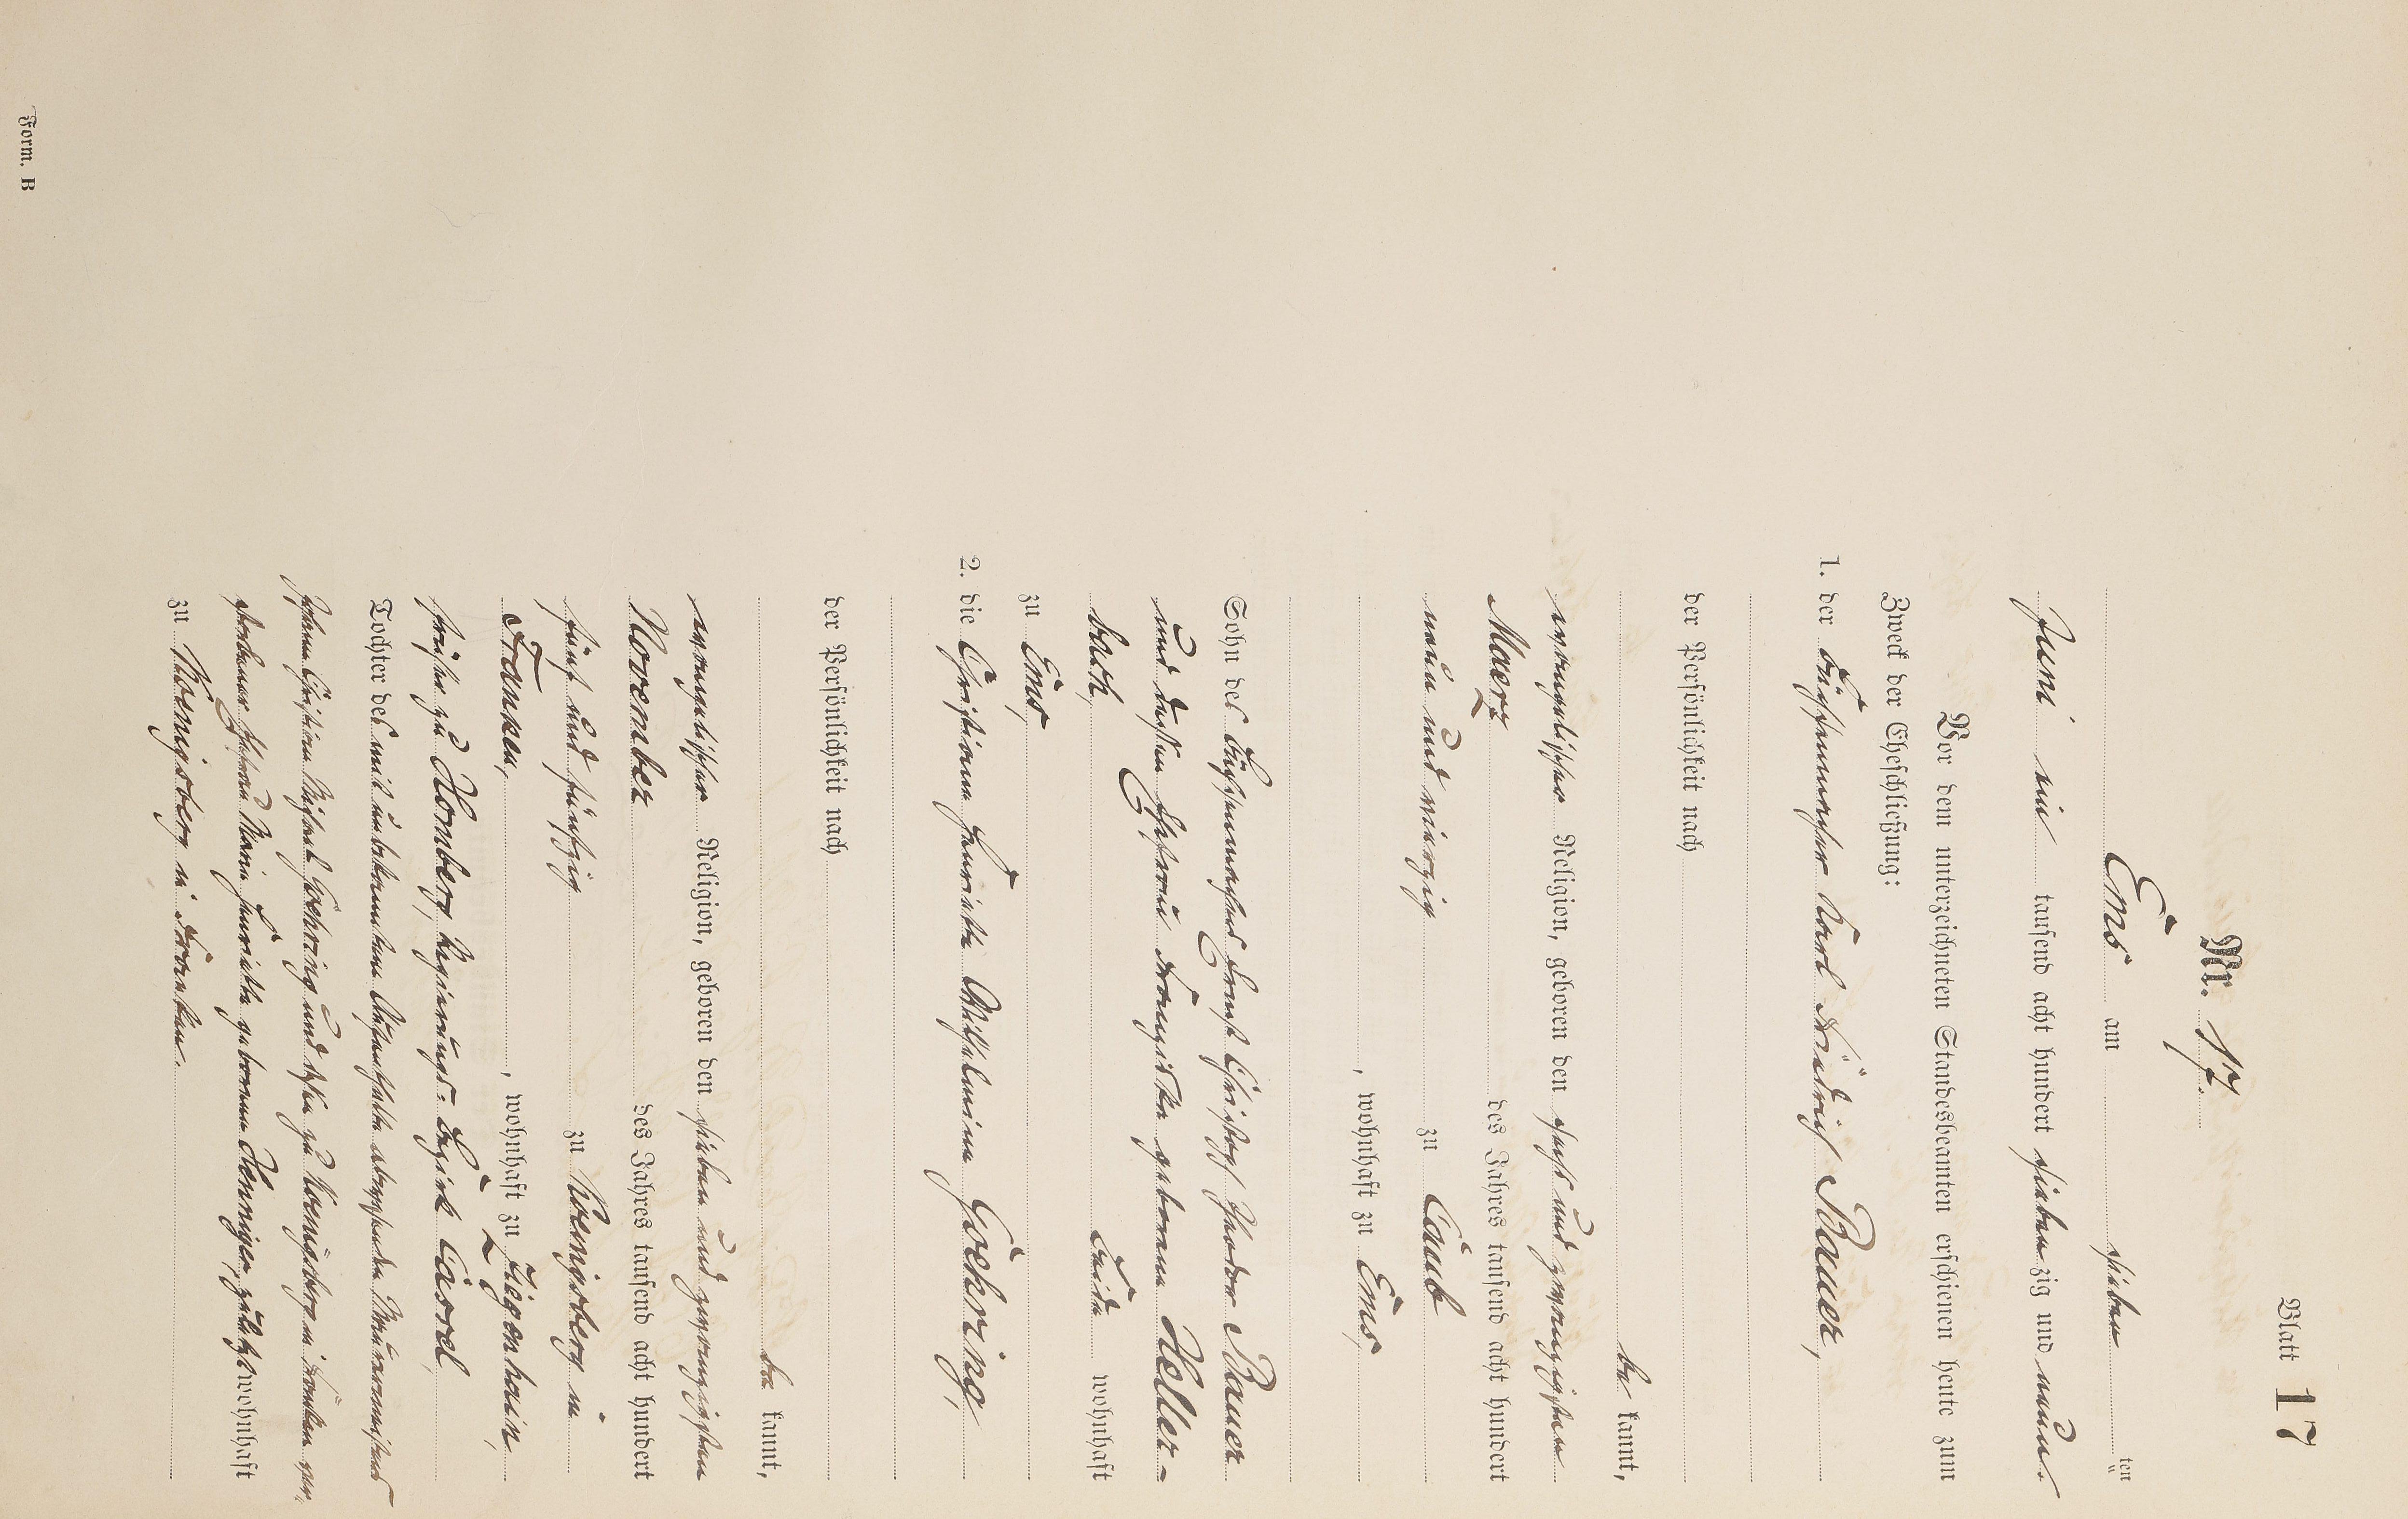 Blatt 17
Nr. 17.
Ems am sieben ten
Juni ein tausend acht hundert siebenzig und neun.
Vor dem unterzeichneten Standesbeamten erschienen heute zum
Zweck der Eheschließung:
1. der Büchsenmacher Karl Friedrich Bauer,
der Persönlichkeit nach
be kannt,
evangelischer Religion, geboren den sechs und zwanzigsten
Maerz des Jahres tausend acht hundert
neun und vierzig zu Caub
, wohnhaft zu Ems,
Sohn des Büchsenmachers Ernst Christoph Theodor Bauer
und dessen Ehefrau Franziska geborene Heller-
bach, beide wohnhaft
zu Ems,
2. die Christiane Henriette Wilhelmine Goehring,
der Persönlichkeit nach
be kannt,
evangelischer Religion, geboren den sieben und zwanzigsten
November des Jahres tausend acht hundert
fünf und fünfzig zu Koenigsberg in
Franken, , wohnhaft zu Ziegenhain,
früher zu Homberg, Regierungs-Bezirk Cassel
Tochter des mit unbekanntem Aufenthalte abwesenden Maurermeisters
Johann Christian Michael Goehring und dessen zu Koenigsberg in Franken ver-
storbener Ehefrau Maria Henrietta geborene Henniger, zuletzt wohnhaft
zu Koenigsberg in Franken.
Form. B